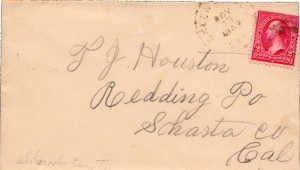 T J Houston
Redding Po
Schasta co
Cal
NOV
2
2